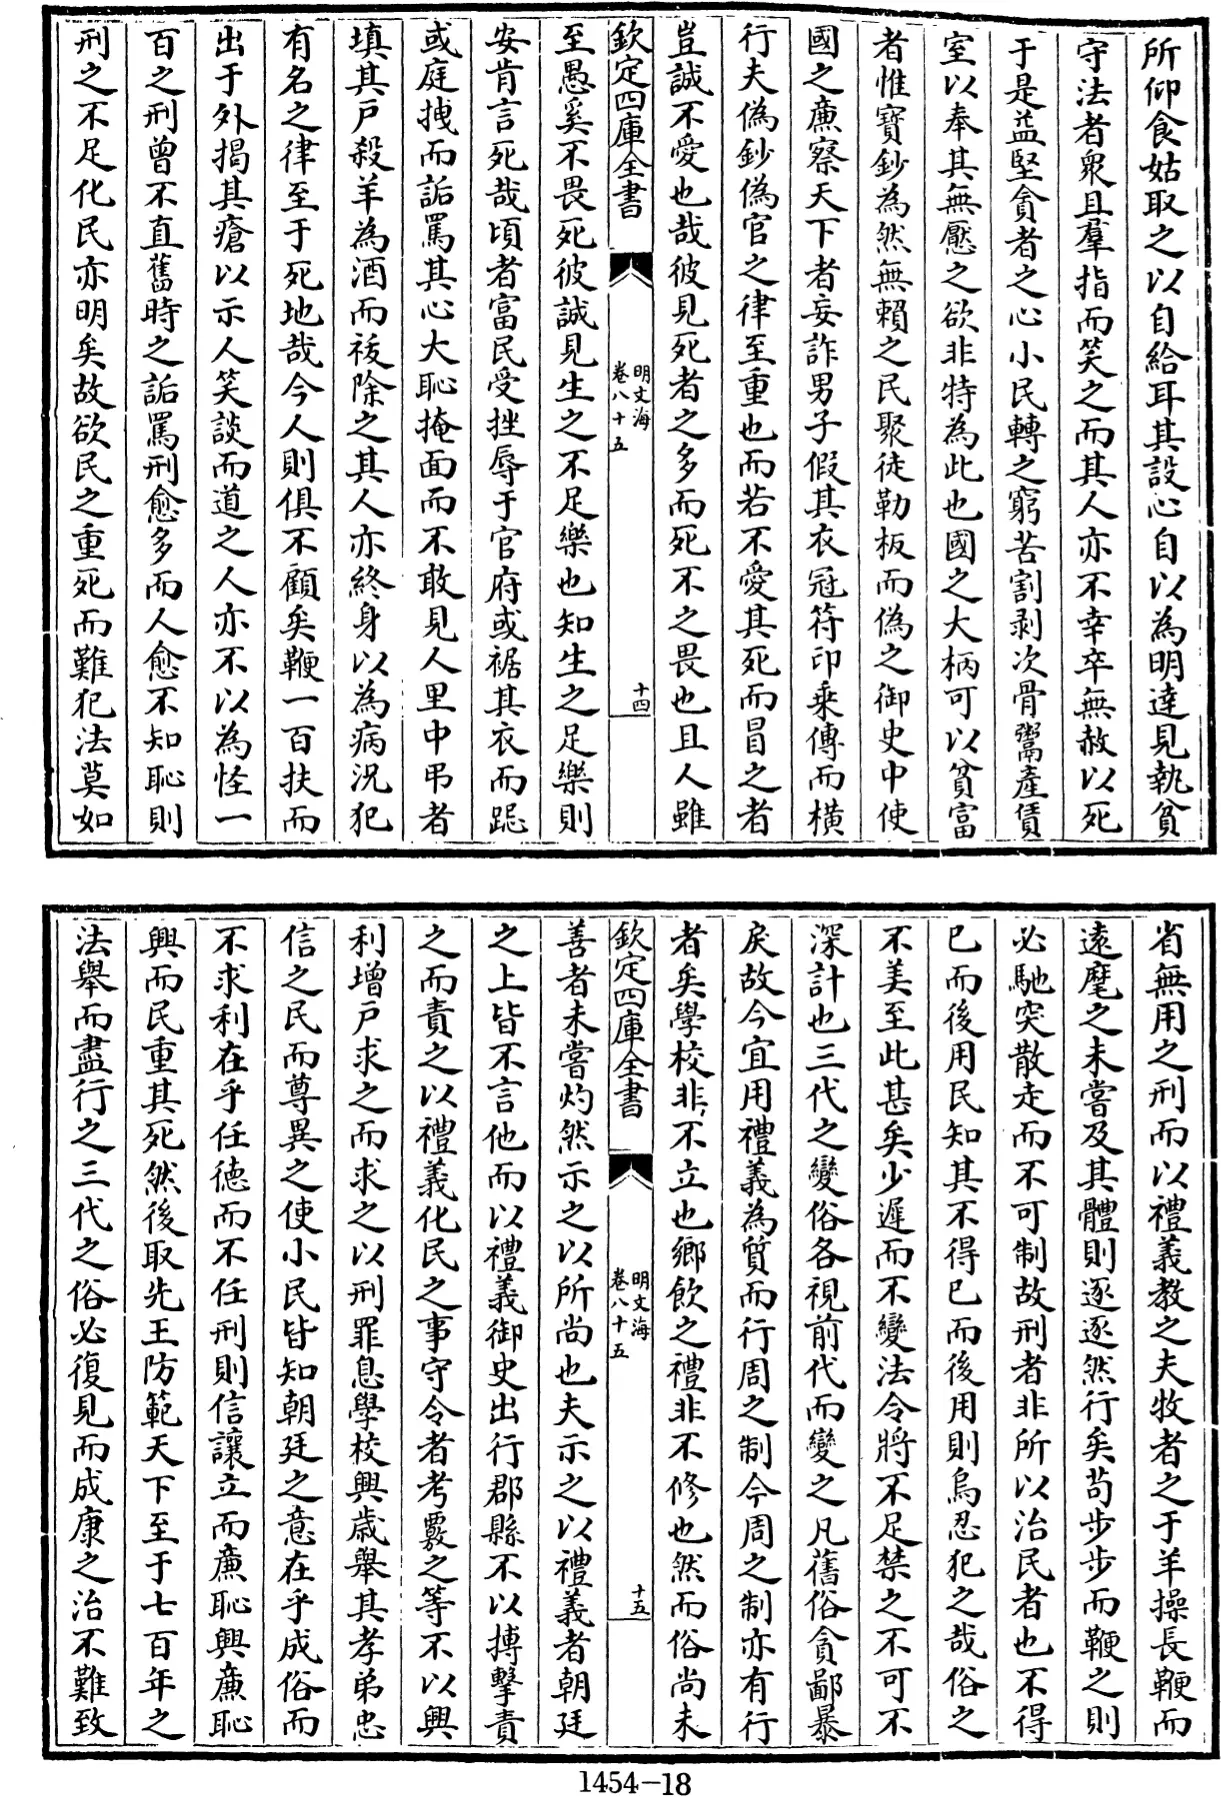 所仰食姑取之以自給耳其設心自以為明達見執貧
守法者衆且羣指而笑之而其人亦不幸卒無赦以死
于是益堅貪者之心小民轉之窮苦割剥次骨鬻產賃
室以奉其無厭之欲非特為此也國之大柄可以貧富
者惟寶鈔為然無賴之民聚徒勒板而偽之御史中使
國之亷察天下者妄詐男子假其衣冠符印乗傳而橫
行夫偽鈔偽官之律至重也而若不愛其死而冒之者
豈誠不愛也哉彼見死者之多而死不之畏也且人雖
欽定四庫全書
明文海
卷八十五
十四
至愚奚不畏死彼誠見生之不足樂也知生之足樂則
安肯言死哉頃者富民受挫辱于官府或裾其衣而跽
或庭拽而詬罵其心大恥掩面而不敢見人里中弔者
填其戶殺羊為酒而祓除之其人亦終身以為病況犯
有名之律至于死地哉今人則俱不顧矣鞭一百扶而
出于外揭其瘡以示人笑談而道之人亦不以為怪一
百之刑曾不直舊時之詬罵刑愈多而人愈不知恥則
刑之不足化民亦明矣故欲民之重死而難犯法莫如
省無用之刑而以禮義教之夫牧者之于羊操長鞭而
遠麾之未嘗及其體則逐逐然行矣苟步步而鞭之則
必馳突散走而不可制故刑者非所以治民者也不得
已而後用民知其不得已而後用則烏忍犯之哉俗之
不美至此甚矣少遲而不變法令將不足禁之不可不
深計也三代之變俗各視前代而變之凡舊俗貪鄙暴
戾故今宜用禮義為質而行周之制今周之制亦有行
者矣學校非不立也鄉飲之禮非不修也然而俗尚未
欽定四庫全書
明文海
卷八十五
十五
善者未嘗灼然示之以所尚也夫示之以禮義者朝廷
之上皆不言他而以禮義御史出行郡縣不以搏擊責
之而責之以禮義化民之事守令者考覈之等不以興
利增戶求之而求之以刑罪息學校興歲舉其孝弟忠
信之民而尊異之使小民皆知朝廷之意在乎成俗而
不求利在乎任德而不任刑則信讓立而亷恥興亷恥
興而民重其死然後取先王防範天下至于七百年之
法舉而盡行之三代之俗必復見而成康之治不難致
1454-18